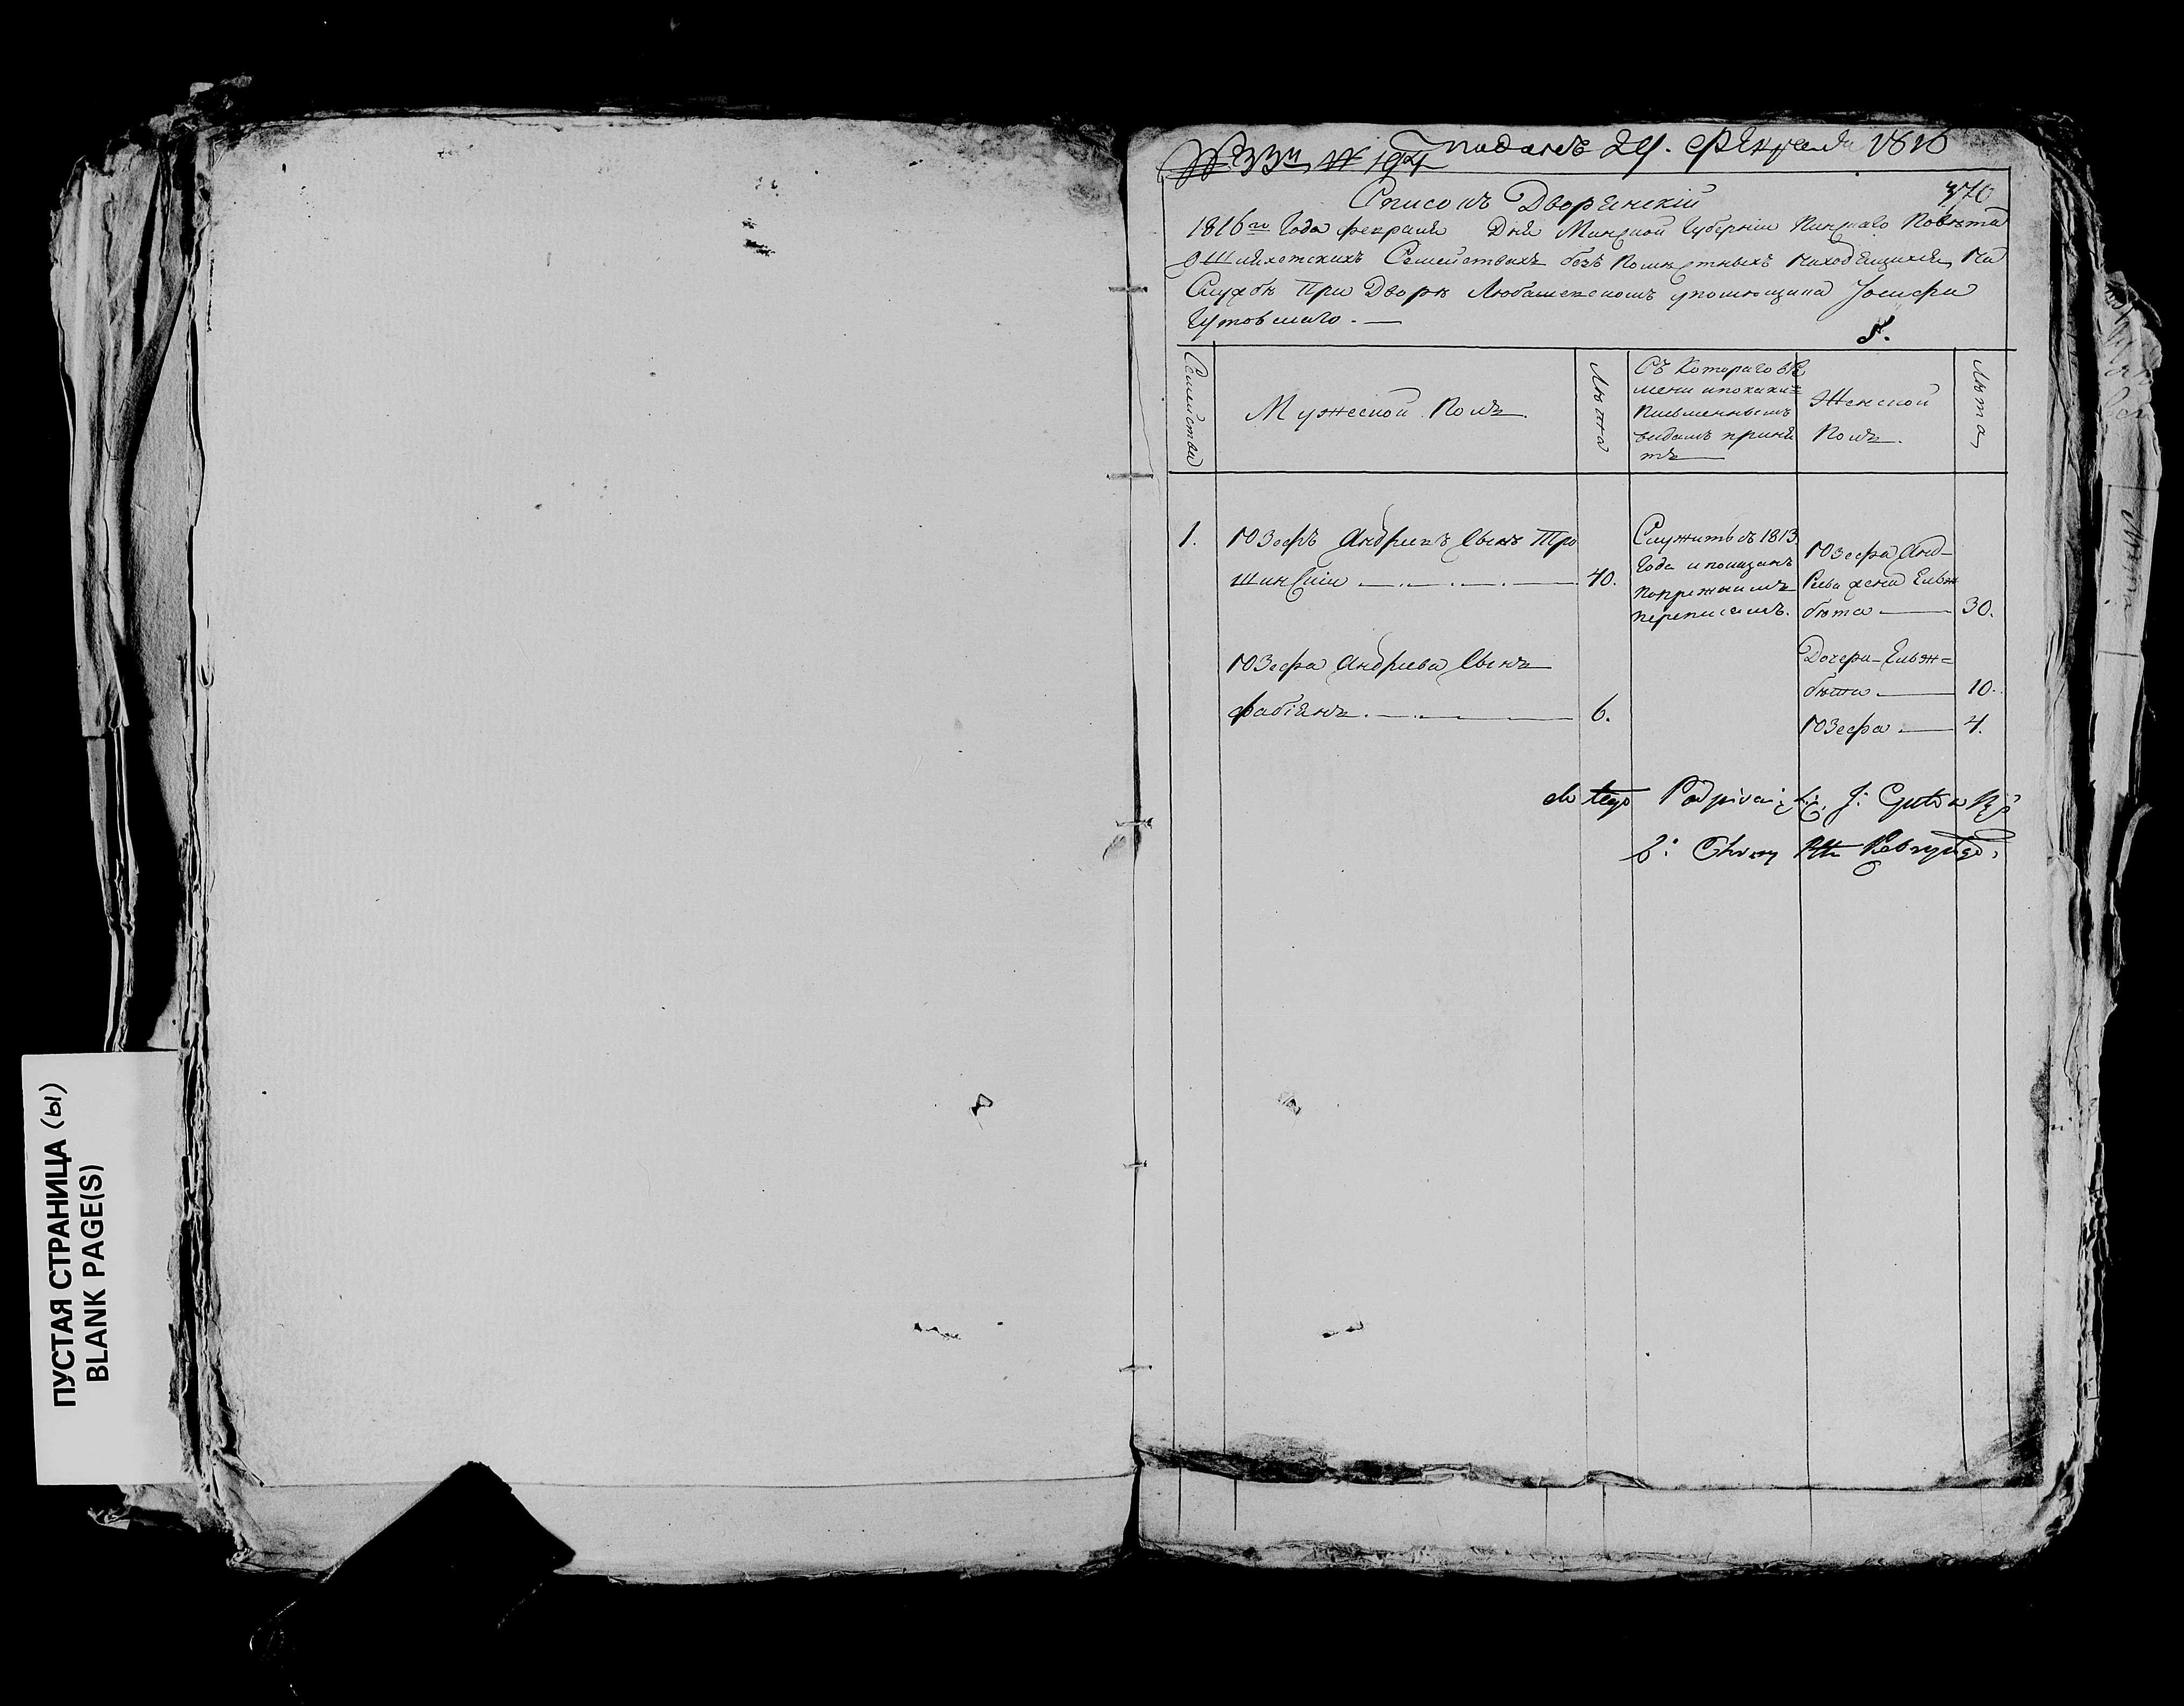 ПУСТАЯ СТРАНИЦА (Ы)
BLANK PAGE(S)
№ 194 подан 29. Февраля 1816
370
Списокъ Дворянскій
1816го Года февраля Дня Минской Губерніи Пинскаго Повѣта
О Шляхетскихъ Семействахъ безъ Помѣстныхъ Находящихся На
Службѣ При Дворѣ Любашевскомъ упомѣщика Іосифа
Гутовскаго. —
Семейства
Мужеской Полъ.
Лѣта
Съ Котораго вре
мени ипокаки=
Письменнымъ
видамъ приня
тъ
Женской
Полъ.
Лѣта
1. Юзефъ Андреевъ Сынъ Тро
шинскій 40.
Служитъ съ 1813
Года и показанъ
попрежнимъ
переписямъ.
Юзефа Анд-
реева жена Ельж
бѣта 30.
Юзефа Андреева Сынъ
Фабіянъ. 6.
Дочери Ельж=
бѣта 10.
Юзефа 4.
do tego Podpisuię J: Gutowski